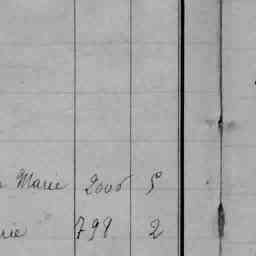 Marie 2006 5
rie 798 2